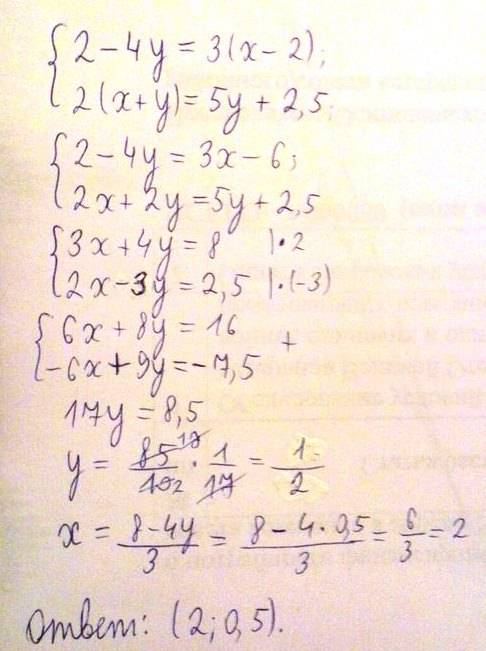 {2 - 4y = 3(x - 2);
{2(x + y) = 5y + 2,5;
{2 - 4y = 3x - 6;
{2x + 2y = 5y + 2,5
{3x + 4y = 8 |·2
{2x - 3y = 2,5 |·(-3)
{6x + 8y = 16 +
{-6x + 9y = -7,5
17y = 8,5
y = 85/10 · 1/17 = 1/2
x = (8 - 4y)/3 = (8 - 4·0,5)/3 = 6/3 = 2
Ответ: (2; 0,5).